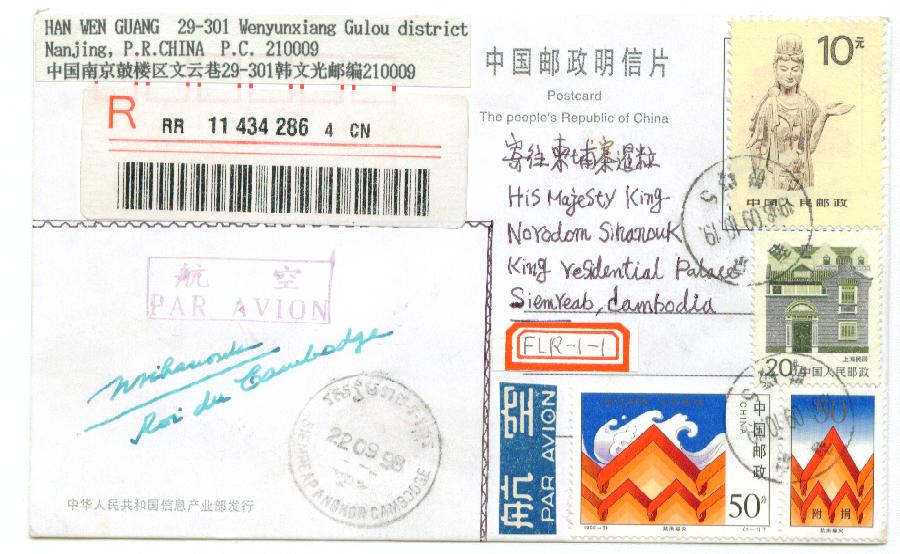 HAN WEN GUANG 29-301 Wenyunxiang Gulou district
Nanjing, P.R.CHINA P.C. 210009
中国南京鼓楼区文云巷29-301韩文光邮编210009
R
RR 11 434 286 4 CN
中国邮政明信片
Postcard
The people's Republic of China
寄往柬埔寨暹粒
His Majesty King
Norodom Sihanouk
King residential Palace
Siemreab, Cambodia
FLR-1-1
航空
PAR AVION
Nsihanouk
Roi du Cambodge
22 09 98
SIEMREAP ANGKOR CAMBODGE
中华人民共和国信息产业部发行
航空
PAR AVION
10元
中国人民邮政
20分
上海民居
中国人民邮政
中国邮政
CHINA
50分
抗洪赈灾
50
附捐
抗洪赈灾